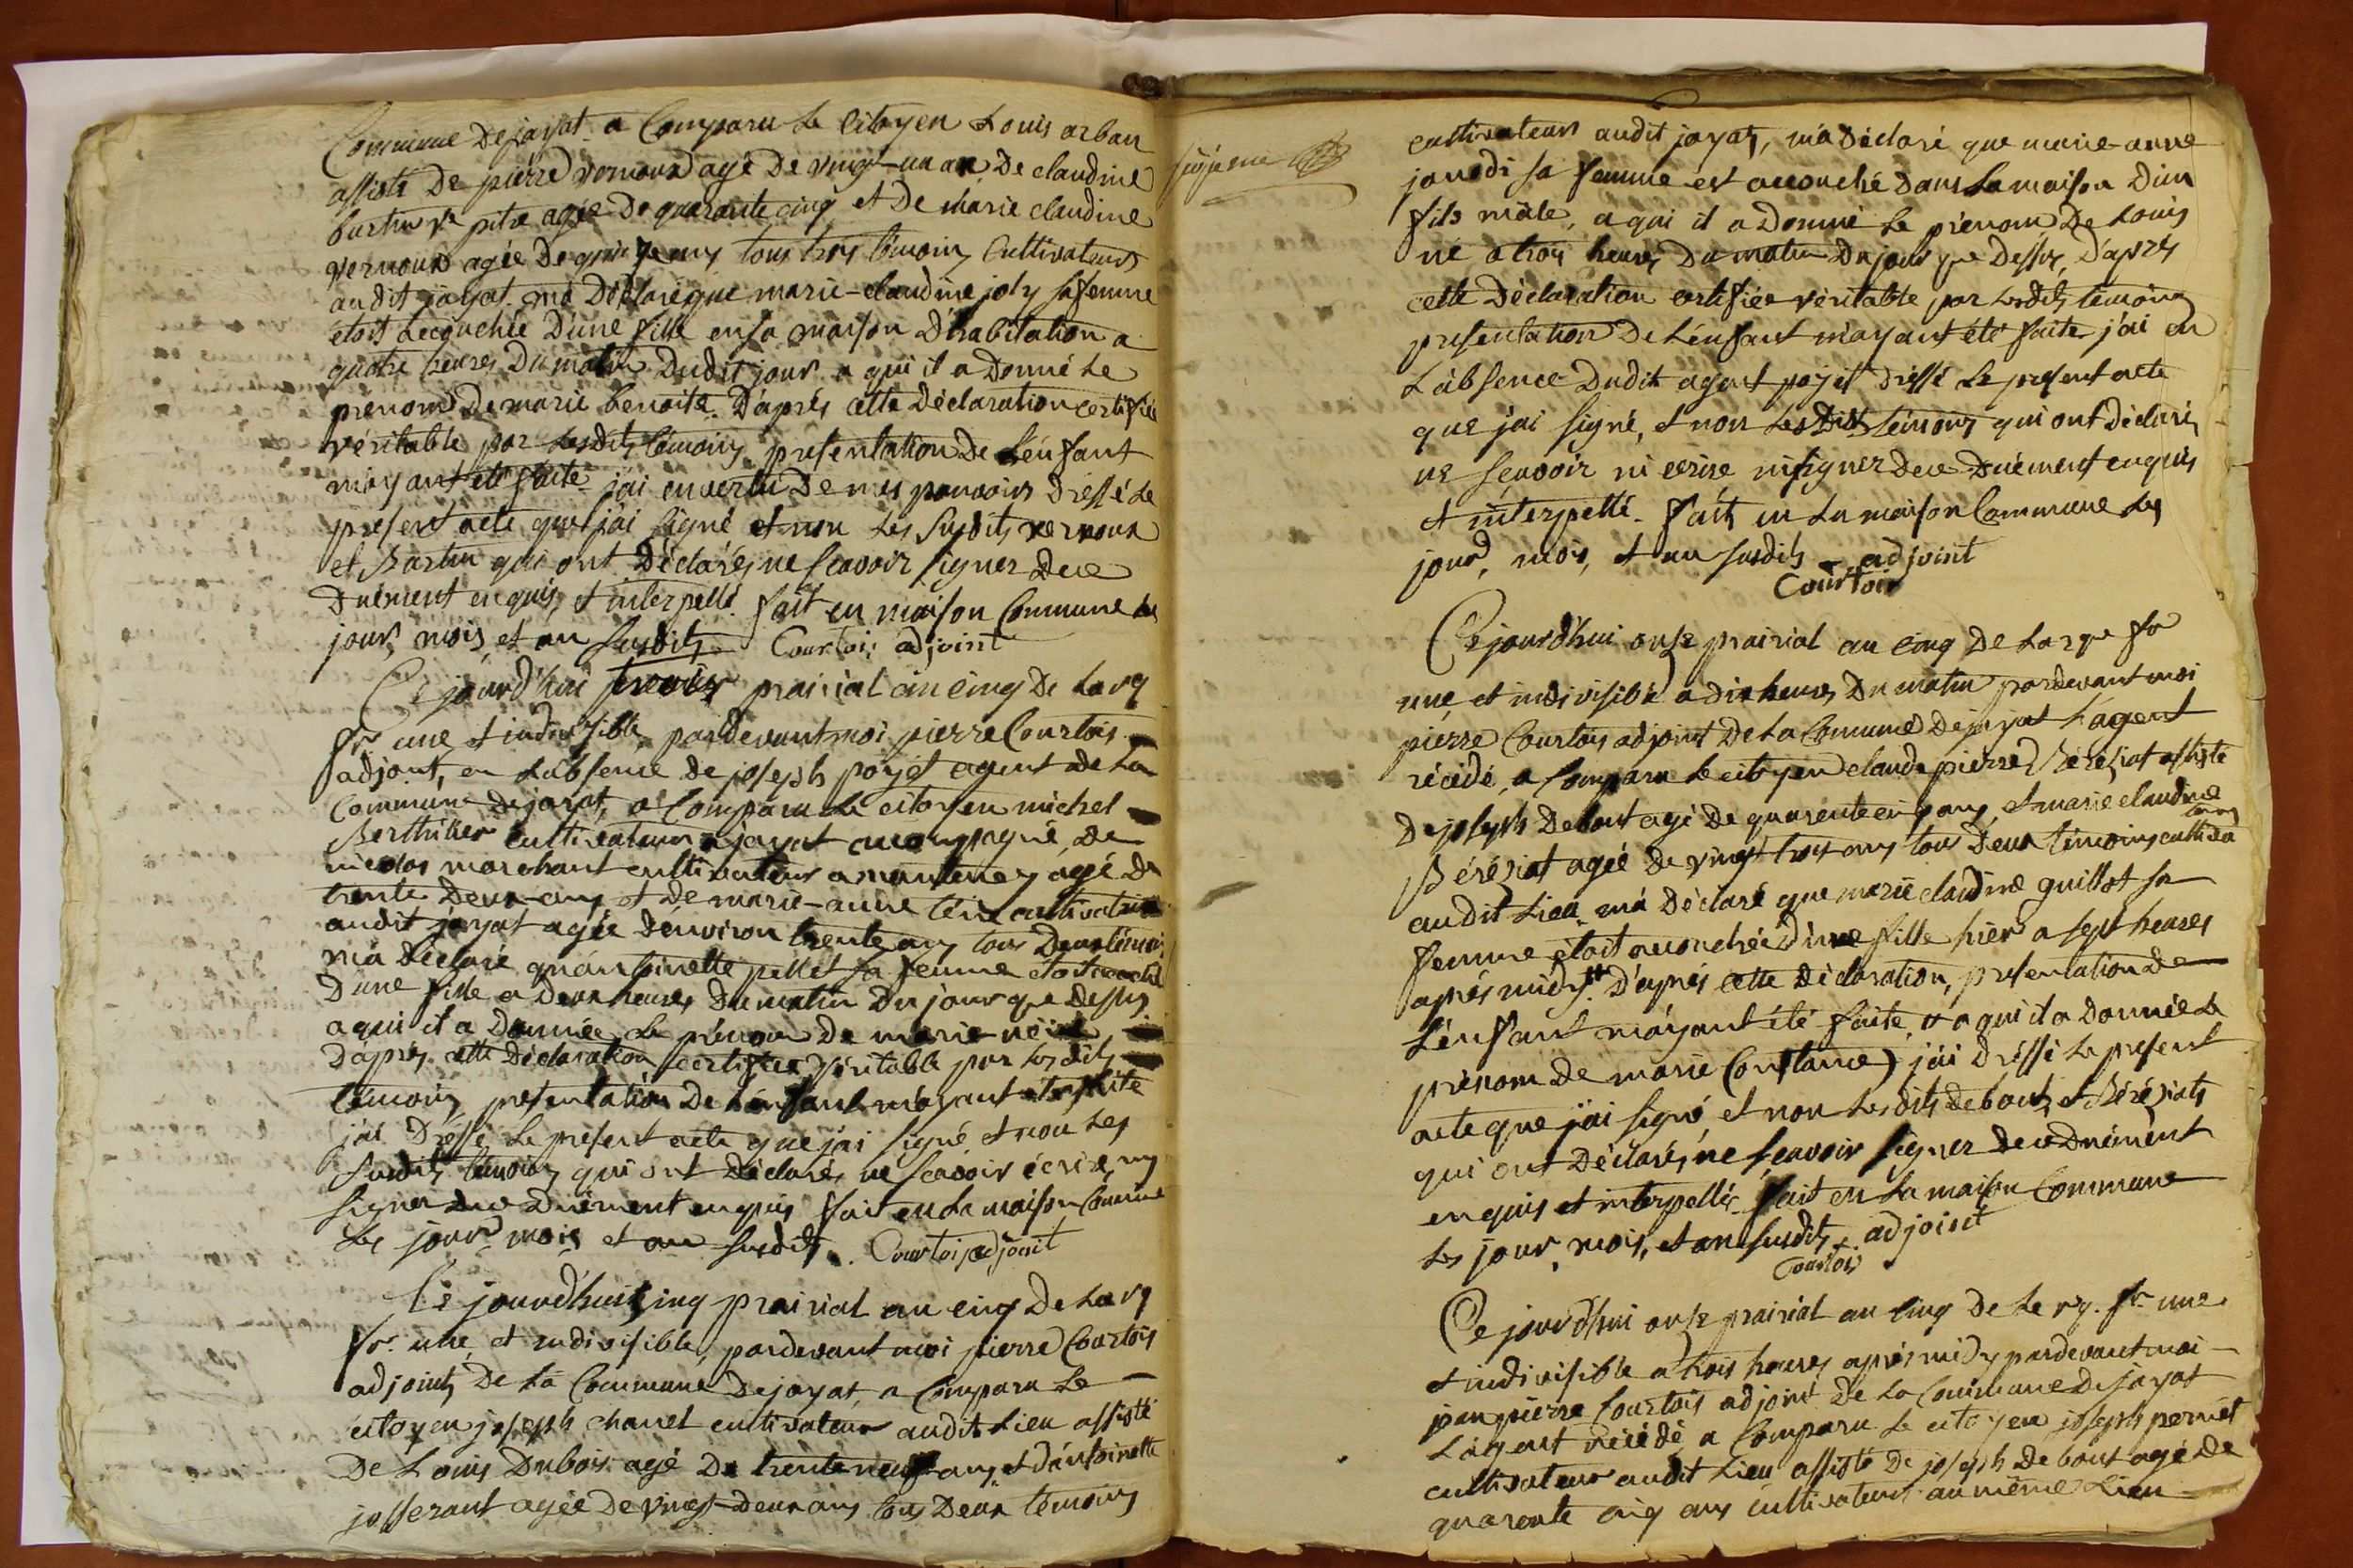 Commune de jayat. a Comparu Le Citoyen Louis arban
assisté De pierre vernoux agé De vingt-un an, De claudine
burtin ve pitre agée De quarante cinq et De marie claudine
vernoux agée De quinze ans tous trois témoins Cultivateurs
audit jayat. m'a Déclaré que marie-claudine joly sa femme
étoit accouchée D'une fille en sa maison D'habitation a
quatre heures Du matin Dudit jour a qui il a Donné Le
prénom De marie benoite. D'aprés cette Déclaration certifiée
véritable par Lesdits témoins, presentation De L'enfant
m'ayant été faite j'ai en vertu De mes pouvoirs Dressé Le
present acte que j'ai signé et non Les susdits vernoux
et Burtin qui ont Déclarés ne scavoir signer De ce
Duément enquis, et interpellé. fait en maison Commune Les
jour, mois, et an susdits Courtois adjoint
Ce jourd'hui prairial an cinq De La rq
fr une, et indivisible pardevant moi pierre Courtois
adjoint, en L'absence De joseph poyet agent De La
Commune De jayat, a Comparu Le citoyen michel
Berthilier cultivateur a jayat accompagné De
nicolas marchant cultivateur a mantenay agé De
trente Deux ans, et De marie-anne cultivatrice
audit jayat agée D'environ trente ans tous Deux témoins
m'a Déclaré qu'antoinette pellet sa femme étoit
D'une fille a Deux heures Du matin Du jour que Dessus
a qui il a Donnée Le prénom De marie-
D'aprés cette Déclaration certifiée véritable par Lesdits
témoins presentation De L'enfant m'ayant été faite
j'ai Dréssé Le present acte que j'ai signé et non Les
susdits témoins qui ont Déclarés ne scavoir écrire, ny
signer De ce Duément enquis fait en La maison Commune
Les jour mois et an susdits. Courtois adjoint
Ce jourd'hui cinq prairial an cinq De La rq
fr. une, et indivisible, pardevant moi pierre Courtois
adjoint, De La Commune De jayat, a Comparu Le
citoyen joseph chanel cultivateur audit Lieu assisté
De Louis Dubois agé De trente neuf ans, et D'antoinette
josserant agée De vingt-Deux ans tous Deux témoins
cultivateurs audit jayat, m'a Déclaré que marie-anne
janodi sa femme est accouché Dans La maison D'un
fils mâle, a qui il a Donné Le prénom De Louis
né a trois heures Du matin Du jour que Dessus, D'aprés
cette Déclaration certifiée véritable par Lesdits témoins
presentation De L'enfant m'ayant été faite j'ai en
L'absence Dudit agent poyet Dréssé Le present acte
que j'ai signé, et non Lesdits témoins qui ont Déclarés
ne scavoir ni ecrire ni signer De ce Duément enquis
et interpellé. fait, en La maison Commune Les
jour, mois, et an susdits adjoint
Courtois
Ce jourd'hui onze prairial an cinq De La rque fr
une, et indivisible a dix heures Du matin pardevant moi
pierre Courtois adjoint De La Commune De jayat L'agent
récédé, a Comparu Le citoyen claude pierre Béréziat assisté
De joseph Debout agé De quarente cinq ans, et marie claudine
Béréziat agée De vingt trois ans tous Deux témoins
audit Lieu m'a Déclaré que marie claudine guillot sa
femme étoit accouchée D'une fille hier a sept heures
aprés midy. D'aprés cette Déclaration, presentation De
L'enfant m'ayant été faite, et a qui il a Donnée Le
prénom De marie Constance) j'ai Dréssé Le present
acte que j'ai signé, et non Lesdits Debout, et Béréziat
qui ont Déclarés ne scavoir signer De ce Duément
enquis et interpellés. fait en La maison Commune
Les jour, mois, et an susdits, adjoint
Courtois
Ce jourd'hui onze prairial an cinq De La rq. fr. une
et indivisible a trois heures aprés midy pardevant moi
jean pierre Courtois adjoint De La Commune De jayat
L'agent récédé, a Comparu Le citoyen joseph pernet
cultivateur audit Lieu assisté De joseph Debout agé De
quarente cinq ans cultivateur au même Lieu